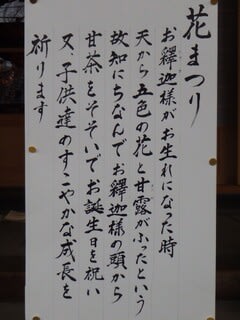 花まつり
お釋迦様がお生れになった時
天から五色の花と甘露がふったという
故知にちなんでお釋迦様の頭から
甘茶をそそいでお誕生日を祝い
又、子供達のすこやかな成長を
祈ります